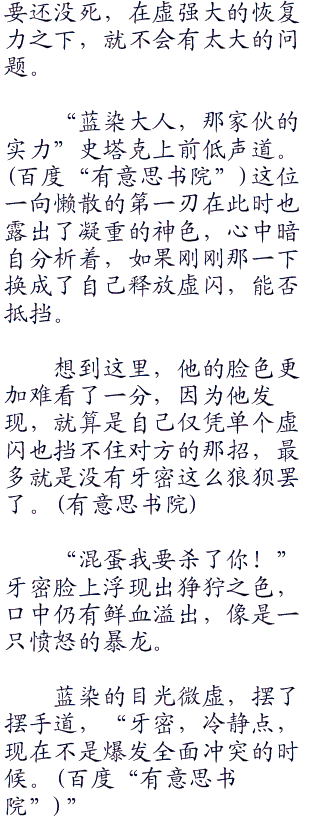 要还没死，在虚强大的恢复
力之下，就不会有太大的问
题。
“蓝染大人，那家伙的
实力”史塔克上前低声道。
(百度“有意思书院”)这位
一向懒散的第一刃在此时也
露出了凝重的神色，心中暗
自分析着，如果刚刚那一下
换成了自己释放虚闪，能否
抵挡。
想到这里，他的脸色更
加难看了一分，因为他发
现，就算是自己仅凭单个虚
闪也挡不住对方的那招，最
多就是没有牙密这么狼狈罢
了。(有意思书院)
“混蛋我要杀了你！”
牙密脸上浮现出狰狞之色，
口中仍有鲜血溢出，像是一
只愤怒的暴龙。
蓝染的目光微虚，摆了
摆手道，“牙密，冷静点，
现在不是爆发全面冲突的时
候。(百度“有意思书
院”)”